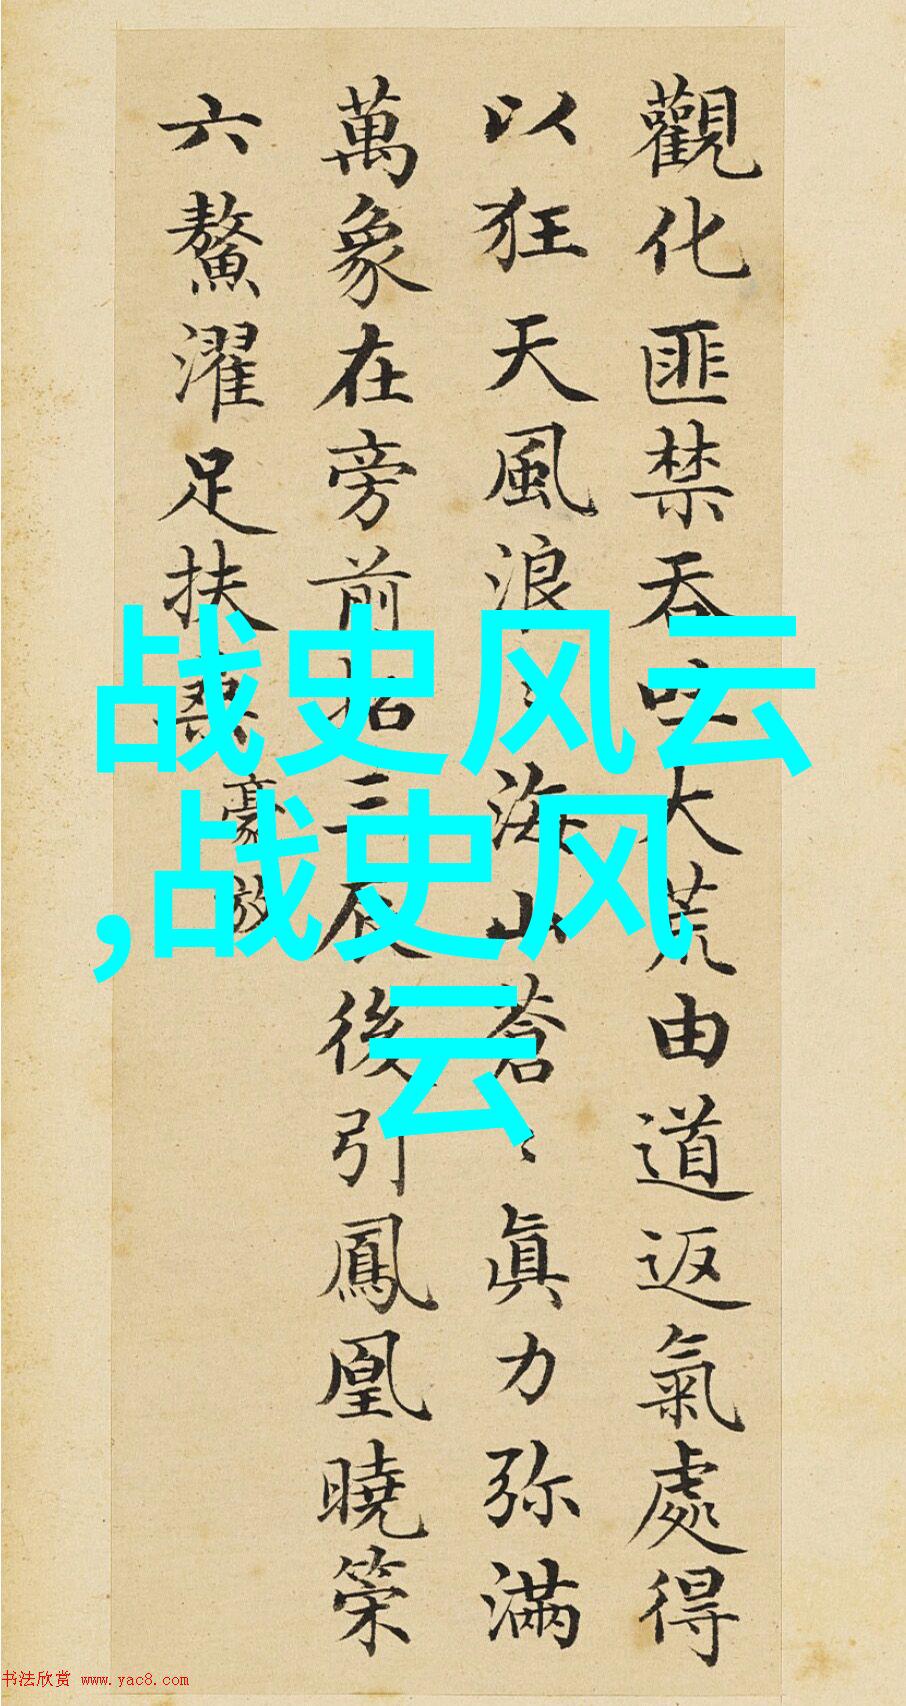 觀化匪禁吞吐大荒由道返氣處得
以狂天風浪〻海山蒼〻眞力弥滿
萬象在旁前招三辰後引鳳凰曉策
六鰲濯足扶桑 豪放
战史风云
,战史风
云
书法欣赏 www.yac8.com